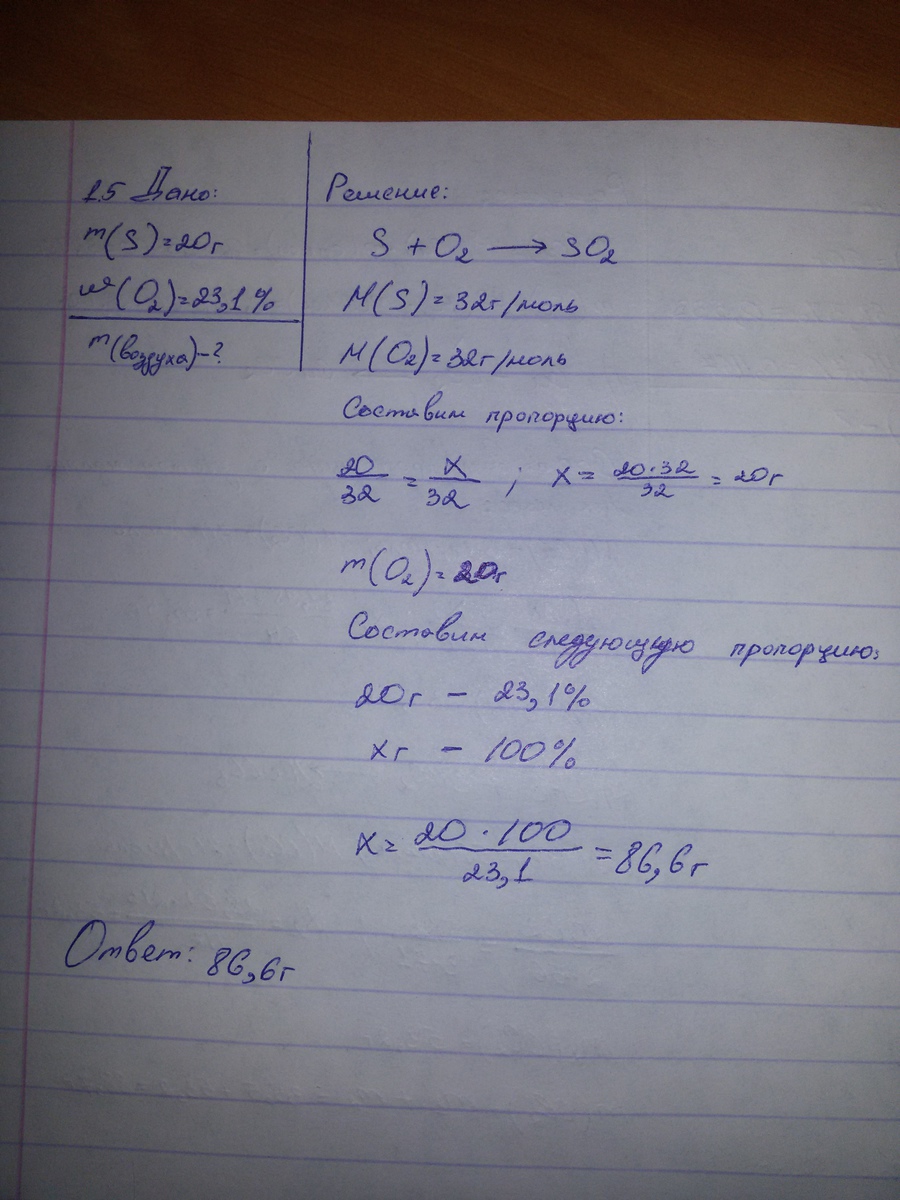 1.5 Дано:
m(S)=20г
w(O₂)=23,1%
m(воздуха)-?
Решение:
S + O₂ → SO₂
M(S)=32г/моль
M(O₂)=32г/моль
Составим пропорцию:
20/32 = x/32 ; x = 20·32/32 = 20г
m(O₂)=20г
Составим следующую пропорцию:
20г – 23,1%
xг – 100%
x= 20·100/23,1 =86,6г
Ответ: 86,6г